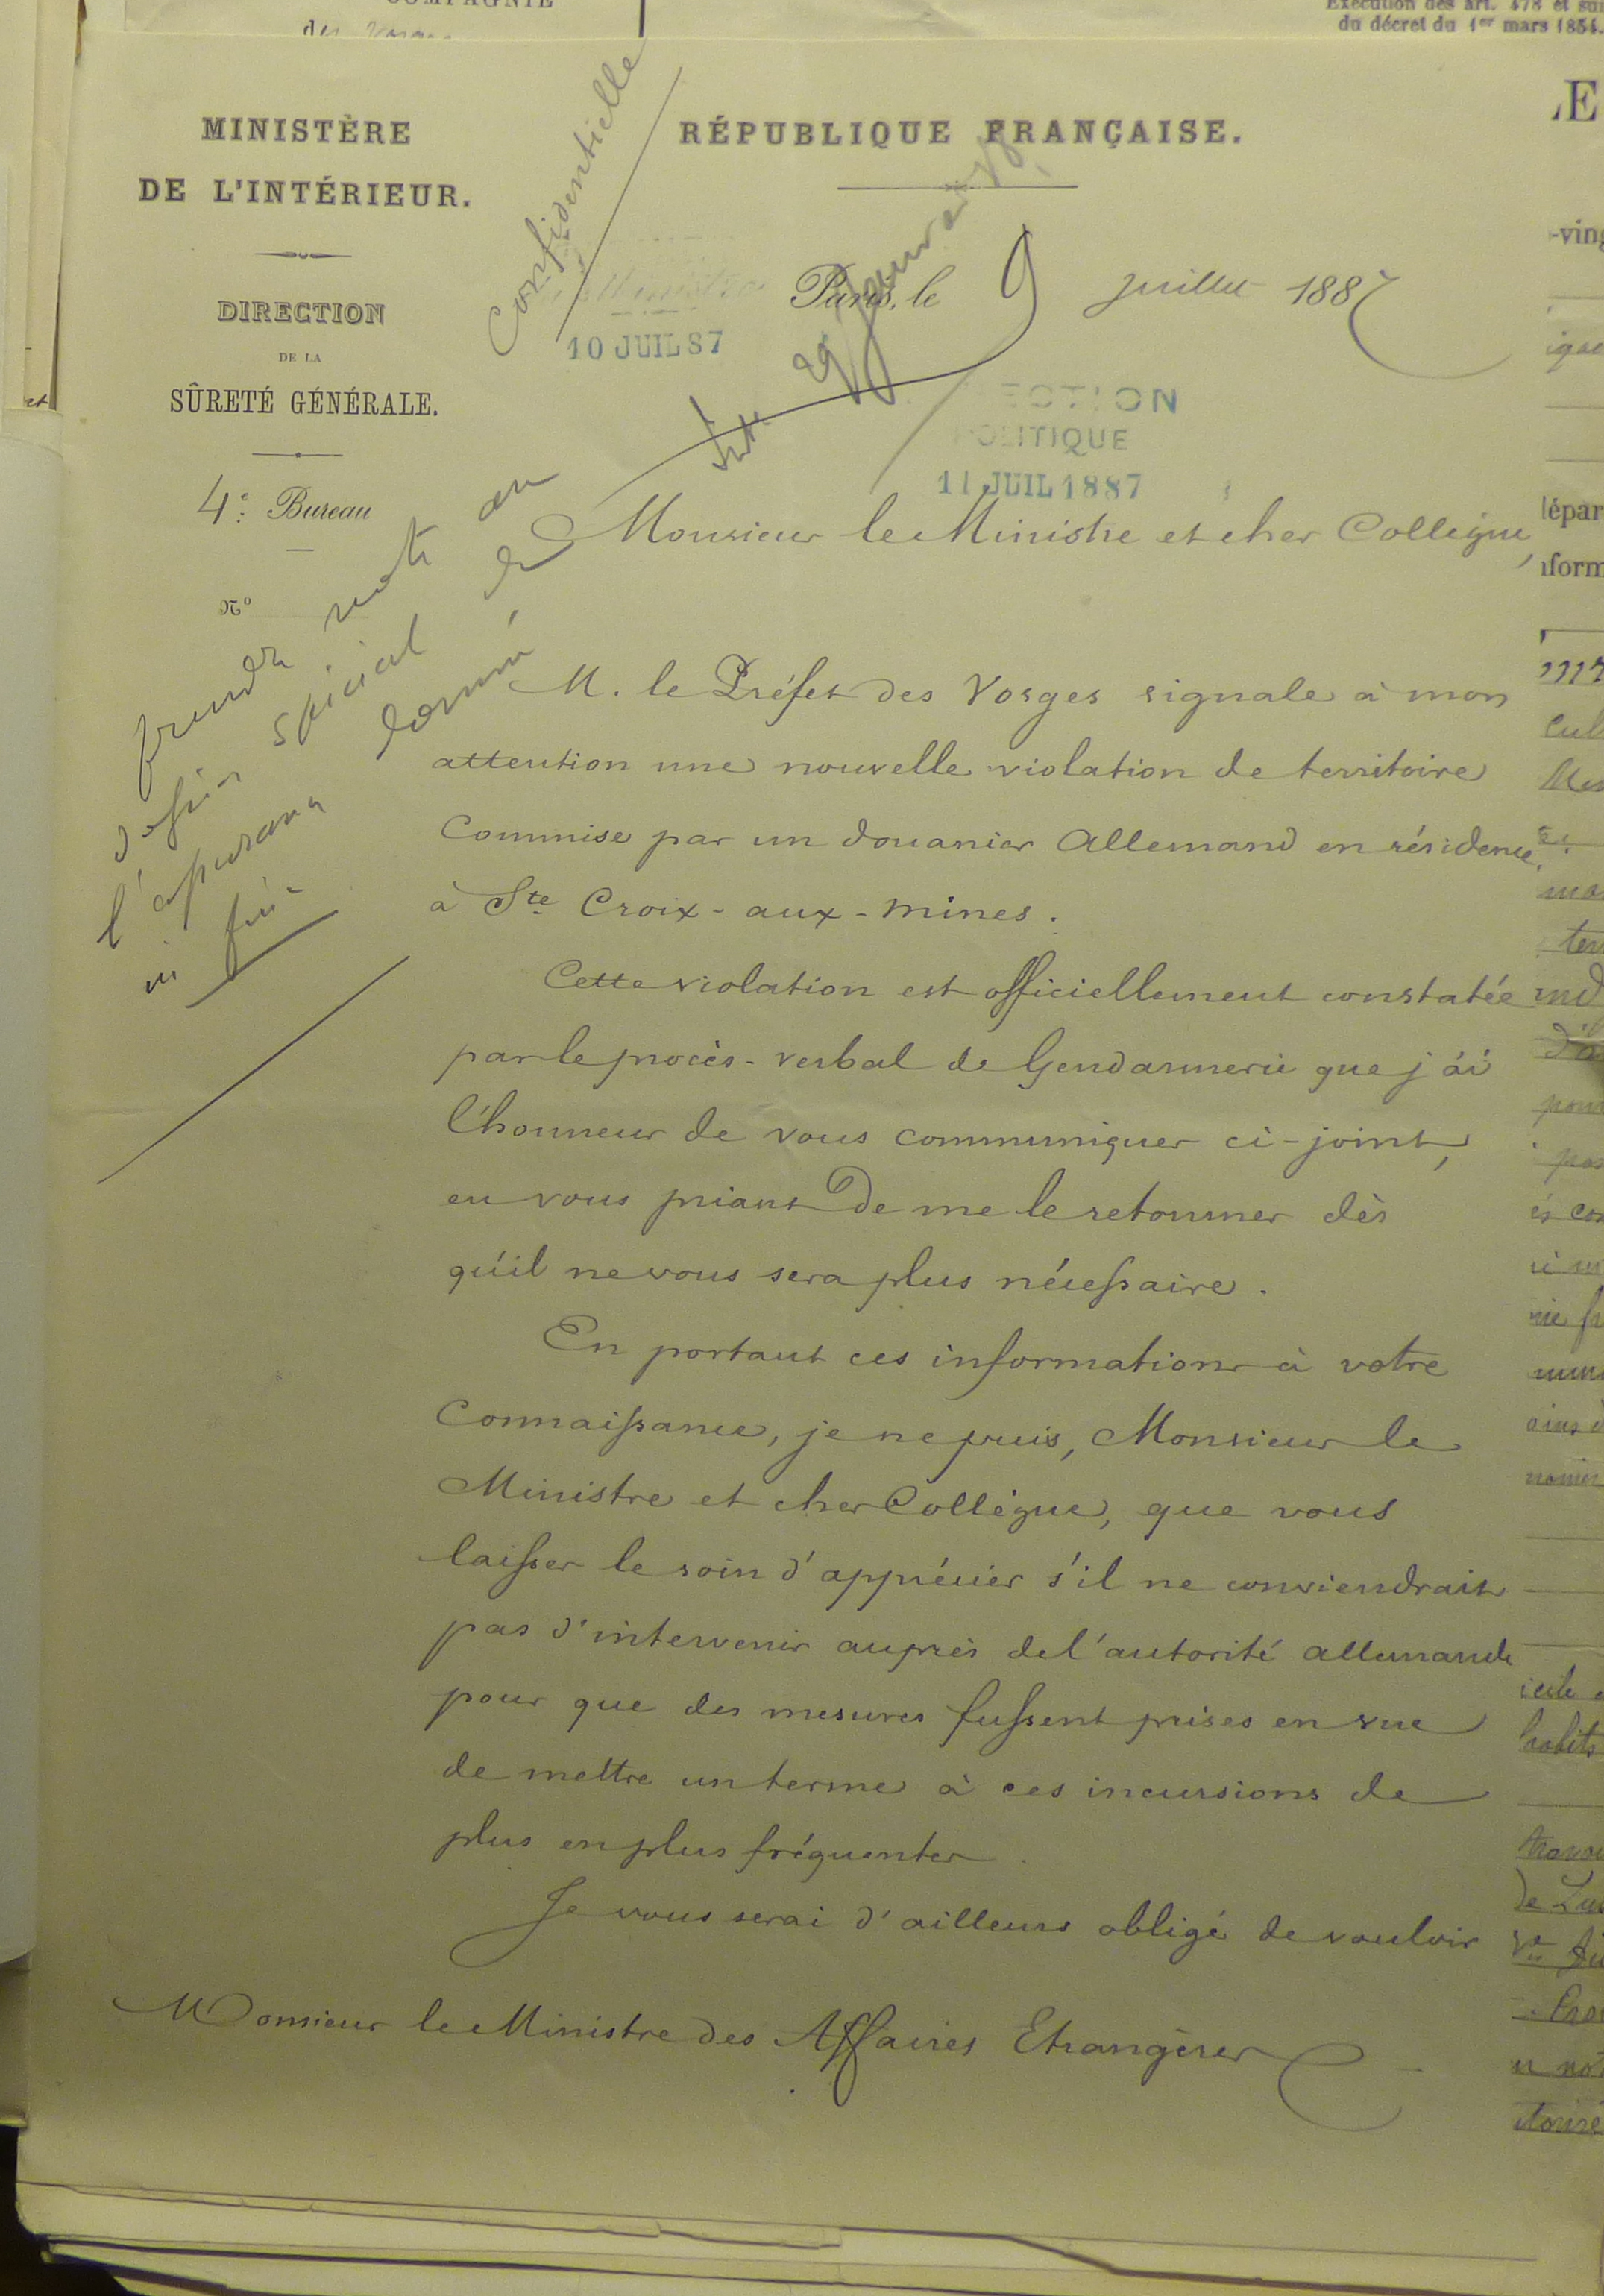 COMPAGNIE
des Vosges
Exécution des art. 478 et sui
du décret du 1er mars 1854.
MINISTÈRE
DE L'INTÉRIEUR.
DIRECTION
DE LA
SÛRETÉ GÉNÉRALE.
4e Bureau
No
Confidentielle
RÉPUBLIQUE FRANÇAISE.
Paris, le 9 Juillet 1887
10 JUIL 87
POLITIQUE
11 JUIL 1887
prendre note au
dossier spécial de
l' donné
Monsieur le Ministre et cher Collègue,
M. le Préfet des Vosges signale à mon
attention une nouvelle violation de territoire
Commise par un douanier Allemand en résidence
à Ste Croix-aux-mines.
Cette violation est officiellement constatée
par le procès-verbal de Gendarmerie que j'ai
l'honneur de vous communiquer ci-joint,
en vous priant de me le retourner dès
qu'il ne vous sera plus nécessaire.
En portant ces informations à votre
Connaissance, je ne puis, Monsieur le
Ministre et cher Collègue, que vous
laisser le soin d'apprécier s'il ne conviendrait
pas d'intervenir auprès de l'autorité allemande
pour que des mesures fussent prises en vue
de mettre un terme à ces incursions de
plus en plus fréquentes.
Je vous serai d'ailleurs obligé de vouloir
Monsieur le Ministre des Affaires Etrangères